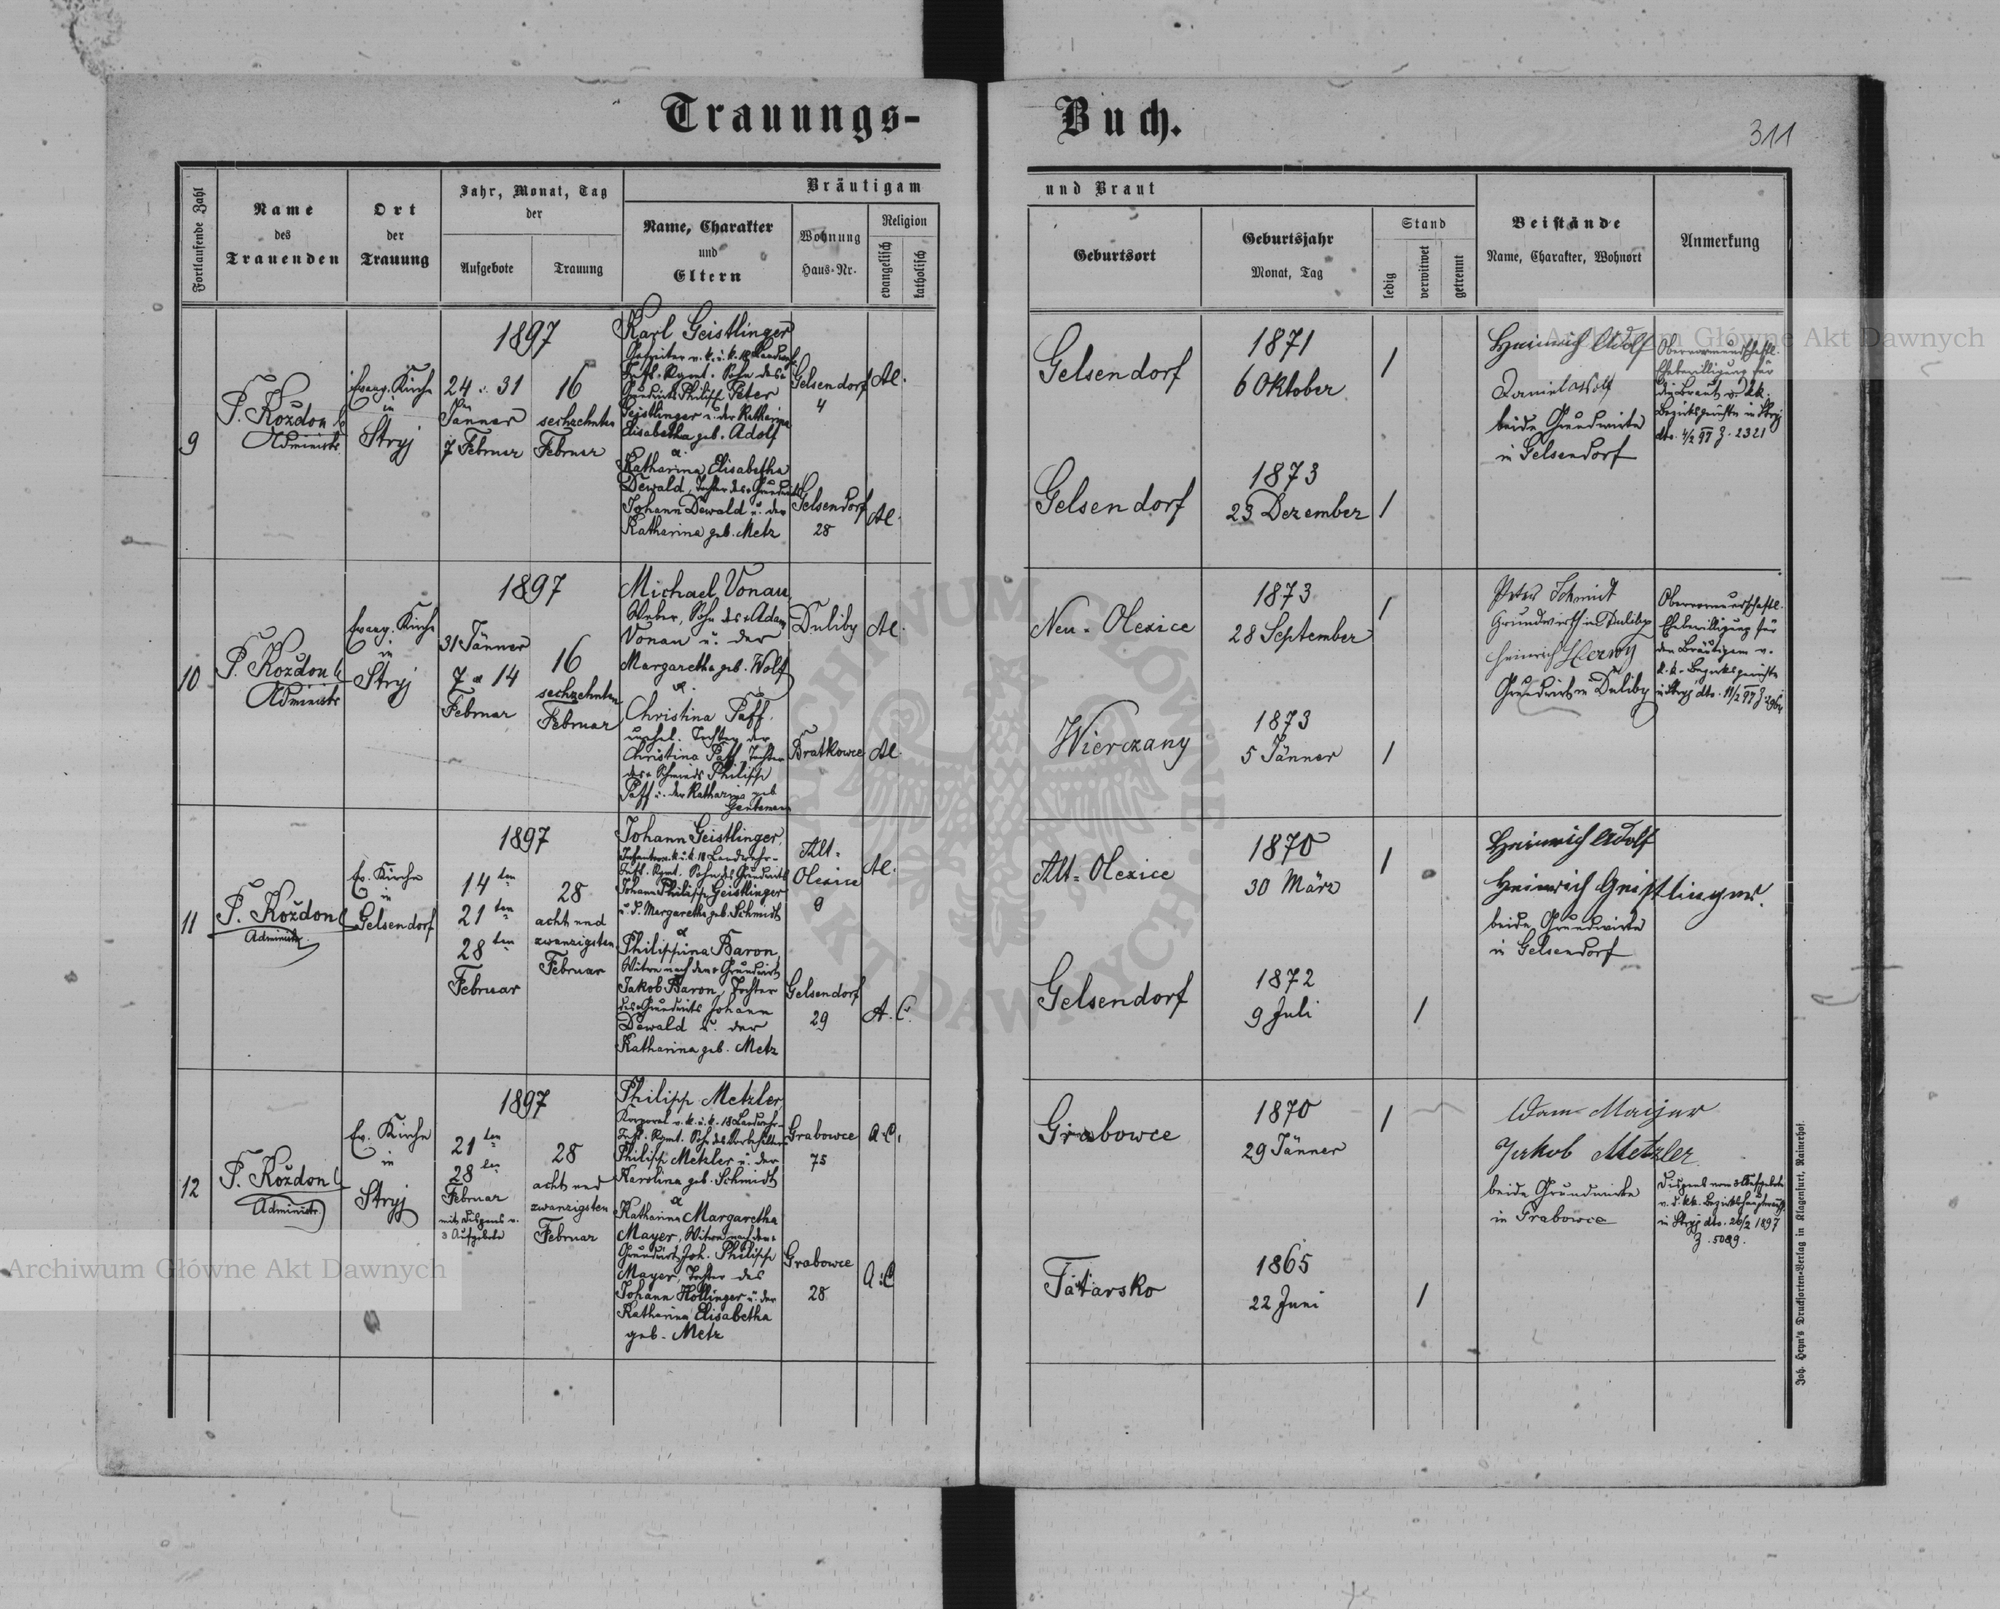 Trauungs-Buch.
311
Fortlaufende Zahl
Name
des
Trauenden
Ort
der
Trauung
Jahr, Monat, Tag
der
Aufgebote
Trauung
Bräutigam
und Braut
Name, Charakter
und
Eltern
Wohnung
Haus-Nr.
Religion
evangelisch
katholisch
Geburtsort
Geburtsjahr
Monat, Tag
Stand
ledig
verwitwet
getrennt
Beistände
Name, Charakter, Wohnort
Anmerkung
9
P. Kożdon
Administr.
Evang. Kirche
in
Stryj
1897
24 u. 31
Jänner
7 Februar
16
sechzehnten
Februar
Karl Geistlinger
Gefreiter v. k. u. k. 18 Landwehr
Inft. Rgmt. Sohn des
Grundwirts Philipp Peter
Geistlinger u. der Katharina
Elisabetha geb. Adolf
&
Katharina Elisabetha
Dewald, Tochter des Grundwirts
Johann Dewald u. der
Katharina geb. Metz
Gelsendorf
4
A.C.
Gelsendorf
28
A.C.
Gelsendorf
1871
6 Oktober
1
Gelsendorf
1873
23 Dezember
1
Heinrich Adolf
Daniel Adolf
beide Grundwirte
in Gelsendorf
Obervormundschaftl.
Ehebewilligung für
die Braut v. k.k.
Bezirksgerichte in Stryj
dto. 4/2 97 Z. 2321
10
P. Kożdon
Administr
Evang. Kirche
in
Stryj
1897
31 Jänner
7 & 14
Februar
16
sechzehnten
Februar
Michael Vonau
Weber, Sohn des Adam
Vonau u. der
Margaretha geb. Wolf
&.
Christina Paff.
unehel. Tochter der
Christina Paff, Tochter
des Schmieds Philipp
Paff u. der Katharina geb
Duliby
A.C.
Bratkowce
A.C.
Neu-Olexice
1873
28 September
1
Wierczany
1873
5 Jänner
1
Peter Schmidt
Grundwirth in Duliby
Heinrich
Grundwirth in Duliby
Obervormundschaftl.
Ehebewilligung für
den Bräutigam v.
k.k. Bezirksgerichte
in Stryj dto. 11/2 97
11
P. Kożdon
Administr.
Ev. Kirche
in
Gelsendorf
1897
14ten
21ten
28ten
Februar
28
acht und
zwanzigsten
Februar
Johann Geistlinger,
Infanterist k. u. k. 18 Landwehr-
Inft. Rgmt. Sohn des Grundwirts
Johann Philipp Geistlinger
u. d. Margaretha geb. Schmidt
&
Philippina Baron,
Witwe nach dem Grundwirt
Jakob Baron, Tochter
des Grundwirts Johann
Dewald u. der
Katharina geb. Metz
Alt-
Olexice
9
A.C.
Gelsendorf
29
A. C.
Alt-Olexice
1870
30 März
1
Gelsendorf
1872
9 Juli
1
Heinrich Adolf
Heinrich Geistlinger.
beide Grundwirte
in Gelsendorf
12
P. Kożdon
Administr.
Ev. Kirche
in
Stryj
1897
21ten
28ten
Februar
mit Dispens v.
3 Aufgebote
28
acht und
zwanzigsten
Februar
Philipp Metzler
Korporal v. k. u. k. 18 Landwehr-
Inft. Rgmt. Sohn des
Philipp Metzler u. der
Karolina geb. Schmidt
&
Katharina Margaretha
Mayer, Witwe nach dem
Grundwirt Joh. Philipp
Mayer, Tochter des
Johann Hollinger u. der
Katharina Elisabetha
geb. Metz
Grabowce
75
A.C.
Grabowce
28
A.C
Grabowce
1870
29 Jänner
1
Tatarsko
1865
22 Juni
1
Adam Majer
Jakob Metzler
beide Grundwirte
in Grabowce
Dispens vom 3 Aufgebote
v. d. k.k. Bezirkshauptmansch.
in Stryj dto. 26/2 1897
Z. 5089.
Joh. Heyn's Drucksorten-Verlag in Klagenfurt, Rainerhof.
Archiwum Główne Akt Dawnych
Archiwum Główne Akt Dawnych
ARCHIWUM GŁÓWNE AKT DAWNYCH